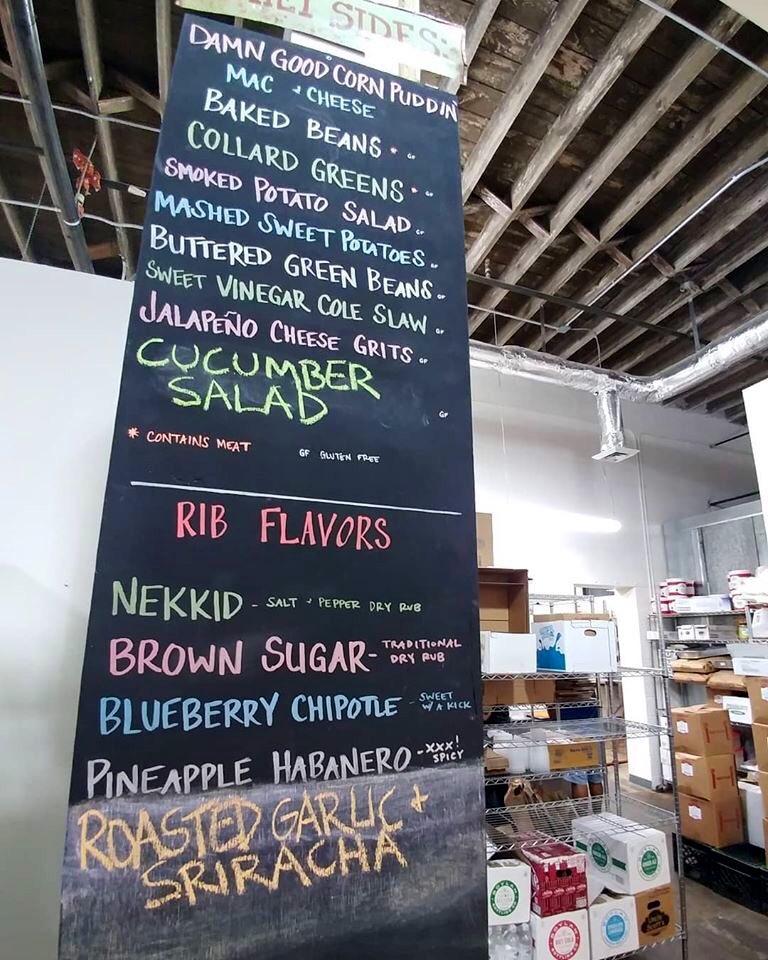 SIDES:
DAMN GOOD CORN PUDDIN
MAC + CHEESE
BAKED BEANS * GF
COLLARD GREENS * GF
SMOKED POTATO SALAD GF
MASHED SWEET POTATOES GF
BUTTERED GREEN BEANS GF
SWEET VINEGAR COLE SLAW GF
JALAPEÑO CHEESE GRITS GF
CUCUMBER
SALAD GF
* CONTAINS MEAT GF GLUTEN FREE
RIB FLAVORS
NEKKID - SALT + PEPPER DRY RUB
BROWN SUGAR - TRADITIONAL
DRY RUB
BLUEBERRY CHIPOTLE - SWEET
W/ A KICK
PINEAPPLE HABANERO - XXX!
SPICY
ROASTED GARLIC +
SRIRACHA